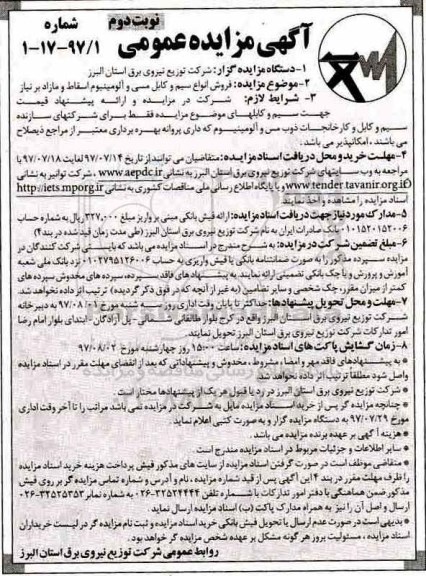 نوبت دوم
شماره
۱-۱۷-۹۷/۱
آگهی مزایده عمومی
۱-دستگاه مزایده گزار: شرکت توزیع نیروی برق استان البرز
۲-موضوع مزایده: فروش انواع سیم و کابل مسی و آلومینیوم اسقاط و مازاد بر نیاز
۳- شرایط لازم: شرکت در مزایده و ارائه پیشنهاد قیمت
جهت سیم و کابلهای موضوع مزایده فقط برای شرکتهای سازنده
سیم و کابل و کارخانجات ذوب مس و آلومینیوم که داری پروانه بهره برداری معتبر از مراجع ذیصلاح
می باشند ، امکانپذیر می باشد .
۴-مهلت خرید و محل دریافت اسناد مزایده: متقاضیان می توانند از تاریخ ۹۷/۰۷/۱۴ لغایت ۹۷/۰۷/۱۸ با
مراجعه به وب سایتهای شرکت توزیع نیروی برق استان البرز به نشانی www.aepdc.ir ، شرکت توانیر به نشانی
www.tender.tavanir.org.ir و یا پایگاه اطلاع رسانی ملی مناقصات کشوری به نشانی http://iets.mporg.ir
اسناد مزایده را مشاهده و اخذ نمایند.
۵-مدارک مورد نیاز جهت دریافت اسناد مزایده: ارائه فیش بانکی مبنی بر واریز مبلغ ۳۲۷,۰۰۰ ریال به شماره حساب
۰۱۰۱۵۲۰۱۵۲۰۰۶ بانک صادرات ایران به نام شرکت توزیع نیروی برق استان البرز (طی مدت زمان قید شده در بند۴)
۶-مبلغ تضمین شرکت در مزایده: به شرح مندرج در اسناد مزایده می باشد که بایستی شرکت کنندگان در
مزایده سپرده مذکور را به صورت ضمانتنامه بانکی یا فیش واریزی به حساب ۰۱۰۲۷۹۵۱۲۶۰۰۶ نزد بانک ملی شعبه
آموزش و پرورش و یا چک بانکی تضمینی ارائه نمایند. به پیشنهادهای فاقد سپرده، سپرده های مخدوش سپرده های
کمتر از میزان مقرر، چک شخصی و سایر تضامین (به غیر از آنچه که در فوق ذکر گردیده) ترتیب اثر داده نخواهد شد.
۷-مهلت و محل تحویل پیشنهادها: حداکثر تا پایان وقت اداری روز سه شنبه مورخ ۹۷/۰۸/۰۱ به دبیرخانه
شرکت توزیع نیروی برق استان البرز واقع در کرج بلوار طالقانی شمالی- پل آزادگان -ابتدای بلوار امام رضا
امور تدارکات شرکت توزیع نیروی برق استان البرز تحویل نمایند.
۸-زمان گشایش پاکت های اسناد مزایده: ساعت ۱۵:۰۰ روز چهارشنبه مورخ ۹۷/۰۸/۰۲
* به پیشنهادهای فاقد مهر و امضا، مشروط ، مخدوش و پیشنهاداتی که بعد از انقضای مهلت مقرر در اسناد مزایده
واصل شود مطلقا ترتیب اثر داده نخواهد شد.
* شرکت توزیع نیروی برق استان البرز در رد یا قبول هر یک از پیشنهادها مختار است.
* چنانچه مزایده گر پس از خرید اسناد مزایده مایل به شرکت در مزایده نمی باشد مراتب را تا آخر وقت اداری
مورخ ۹۷/۰۷/۲۹ به دستگاه مزایده گزار و به صورت کتبی اعلام نماید.
* هزینه آگهی بر عهده برنده مزایده می باشد .
* سایر اطلاعات و جزئیات مربوط در اسناد مزایده مندرج است
* متقاضی موظف است در صورت گرفتن اسناد مزایده از سایت های مذکور فیش پرداخت هزینه خرید اسناد مزایده
را ظرف مهلت مقرر در بند ۴ این آگهی پس از قید شماره مزایده ، نام و آدرس و شماره تماس مزایده گر بر روی فیش
مذکور ضمن هماهنگی با دفتر امور تدارکات با شماره تلفن ۳۲۵۲۴۴۴۴-۰۲۶ به شماره نمابر ۳۲۵۲۵۳۵۳-۰۲۶
ارسال و اصل آن را نیز به همراه مدارک پاکت (ب) اسناد مزایده ارسال نماید
* بدیهی است در صورت عدم ارسال یا تحویل فیش بانکی خرید اسناد مزایده و ثبت نام مزایده گر در لیست خریداران
اسناد مزایده ، مسئولیت بروز هر گونه مشکل بر عهده شخص مزایده گر خواهد بود.
روابط عمومی شرکت توزیع نیروی برق استان البرز